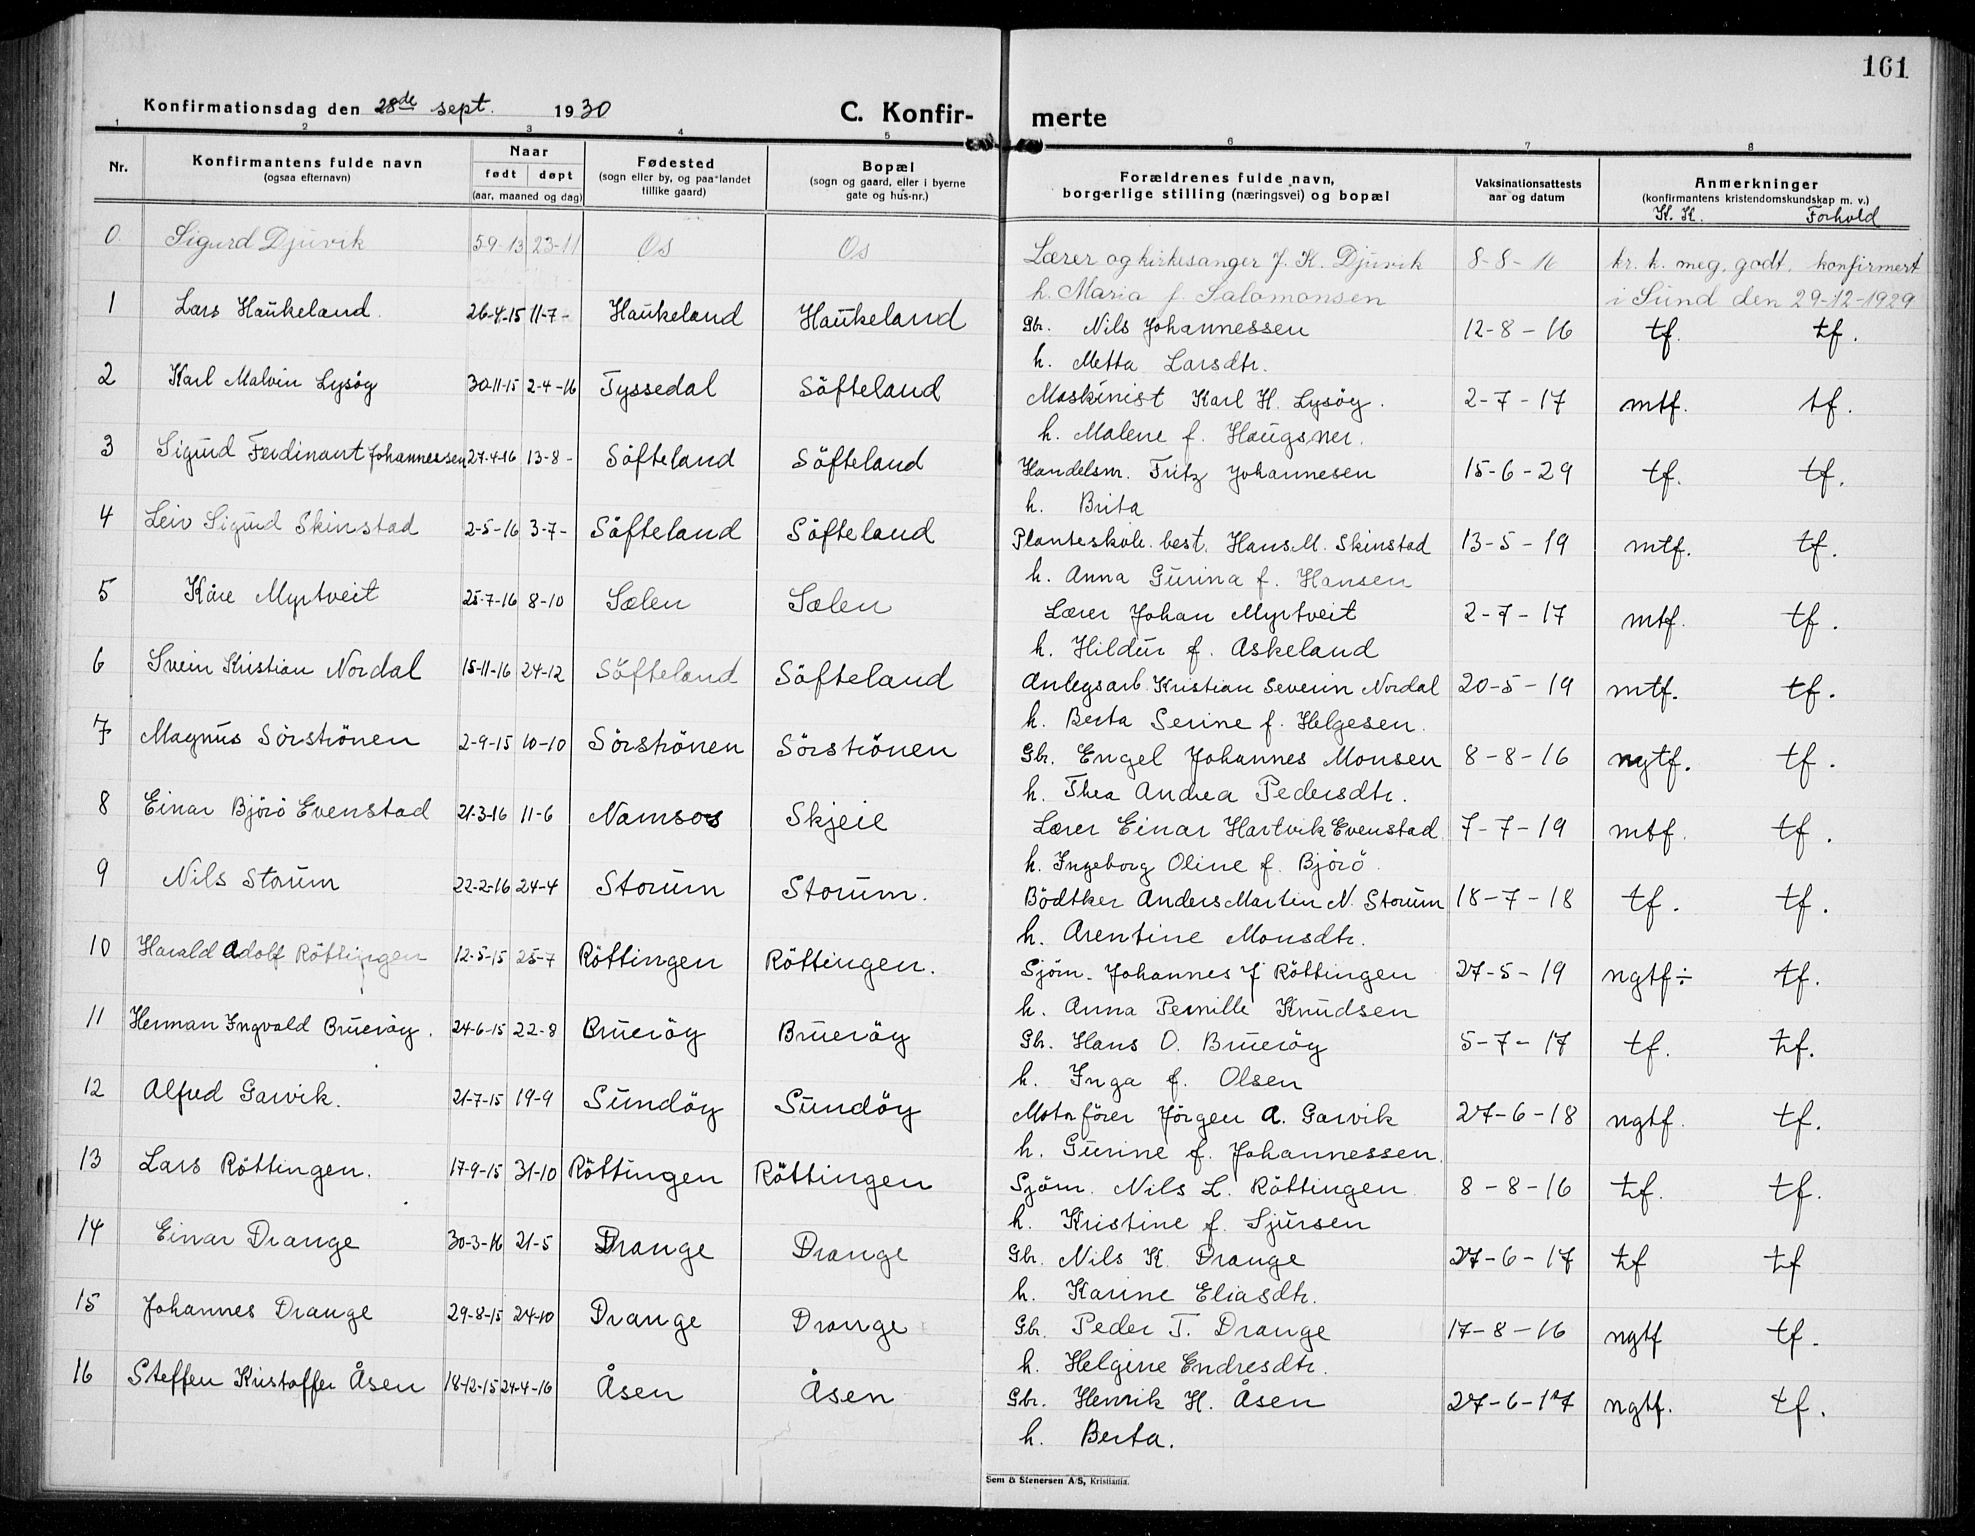 161
Konfirmationsdag den 28de sept. 1930 C. Konfir- merte
1 2 3 4 5 6 7 8
Nr. Konfirmantens fulde navn (ogsaa efternavn) Naar født døpt (aar, maaned og dag) Fødested (sogn eller by, og paa landet tillike gaard) Bopæl (sogn og gaard, eller i byerne gate og hus-nr.) Forældrenes fulde navn, borgerlige stilling (næringsvei) og bopæl Vaksinationsattests aar og datum Anmerkninger (konfirmantens kristendomskundskap m. v.)
K. K. Forhold
0 Sigurd Djuvik 5-9-13 23-11 Os Os Lærer og kirkesanger J. K. Djuvik 8-8-16 kr. k. meg. godt. konfirmert
h. Maria f. Salomonsen i Sund den 29-12-1929
1 Lars Haukeland. 26-4-15 11-7- Haukeland Haukeland Gbr. Nils Johannessen 12-8-16 tf. tf.
h. Metta Larsdtr.
2 Karl Malvin Lysöy 30-11-15 2-4-16 Tyssedal Söfteland Maskinist Karl H. Lysöy. 2-7-17 mtf. tf.
h. Malene f. Haugsner.
3 Sigurd Ferdinant Johannessen 27-4-16 13-8- Söfteland Söfteland Handelsm. Fritz Johannesen 15-6-29 tf. tf.
h. Brita
4 Leiv Sigurd Skinstad 2-5-16 3-7- Söfteland Söfteland Planteskole. best. Hans M. Skinstad 13-5-19 mtf. tf.
h. Anna Gurina f. Hansen
5 Kåre Myrtveit 25-7-16 8-10 Sælen Sælen Lærer Johan Myrtveit 2-7-17 mtf. tf.
h. Hildur f. Askeland
6 Svein Kristian Nordal 15-11-16 24-12 Söfteland Söfteland Anlegsarb. Kristian Severin Nordal 20-5-19 mtf. tf.
h. Berta Serine f. Helgesen.
7 Magnus Sörströnen 2-9-15 10-10 Sörströnen Sörströnen Gbr. Engel Johannes Monsen 8-8-16 ngtf. tf.
h. Thea Andrea Pedersdtr.
8 Einar Björö Evenstad 21-3-16 11-6 Namsos Skjeie Lærer Einar Hartvik Evenstad 7-7-19 mtf. tf.
h. Ingeborg Oline f. Björö
9 Nils Storum 22-2-16 24-4 Storum Storum. Bödtker Anders Martin N. Storum 18-7-18 tf. tf.
h. Arentine Monsdtr.
10 Harald Adolf Röttingen 12-5-15 25-7 Röttingen Röttingen. Sjöm. Johannes J. Röttingen 27-5-19 ngtf÷ tf.
h. Anna Pernille Knudsen
11 Herman Ingvald Brueröy. 24-6-15 22-8 Brueröy Brueröy Gbr. Hans O. Brueröy 5-7-17 tf. tf.
h. Inga f. Olsen
12 Alfred Garvik. 21-7-15 19-9 Sundöy Sundöy Motorförer Jörgen A. Garvik 27-6-18 ngtf. tf.
h. Gurine f. Johannessen.
13 Lars Röttingen. 17-9-15 31-10 Röttingen Röttingen Sjöm. Nils L. Röttingen 8-8-16 tf. tf.
h. Kristine f. Sjursen
14 Einar Drange 30-3-16 21-5 Drange Drange Gbr. Nils K. Drange 27-6-17 tf tf
h. Karine Eliasdtr.
15 Johannes Drange 29-8-15 24-10 Drange Drange Gbr. Peder T. Drange 17-8-16 ngtf tf.
h. Helgine Endresdtr.
16 Steffen Kristoffer Åsen 18-12-15 24-4-16 Åsen Åsen Gbr. Henrik H. Åsen 27-6-17 ngtf. tf.
h. Berta.
Sem & Stenersen A/S, Kristiania.